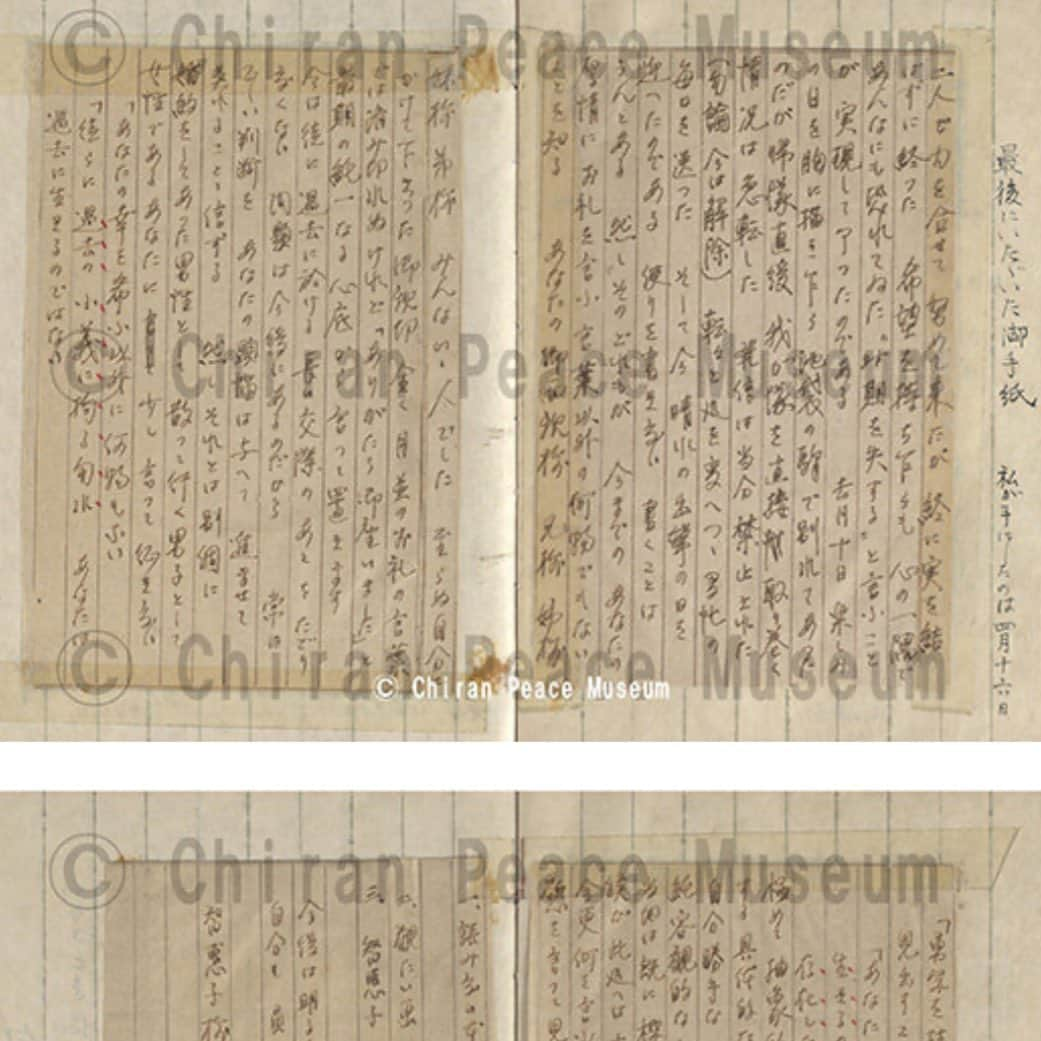 最後にいたゞいた御手紙　私が手にしたのは四月十六日
二人で力を合せて努めて来たが終に実を結
ばずに終つた　希望を持ち乍らも心の一隅で
あんなにも恐れてゐた“時期を失する”と言ふこと
が実現して了つたのである　去月十日楽しみ
の日を胸に描き乍ら池袋の駅で別れてあつた
のだが帰隊直後　我が隊を直接取り巻く
情況は急転した　発信は当分禁止された
（勿論　今は解除）転々と処を変へつゝ多忙の
毎日を送つた　そして今　晴れの出撃の日を
迎へたのである　便りを書き度い　書くことは
うんとある　然しそのどれもが今までのあなたの
厚情にお礼を言ふ言葉以外の何物でもない
ことを知る　あなたの御両親様　兄様　姉様
妹様　弟様　みんないゝ人でした　至らぬ自分に
かけて下さつた御親切　全く月並のお礼の言葉
では済み切れぬけれど「ありがたう御座いました」と
最期の純一なる心底から言つて置きます
今は徒に過去に於ける長い交際のあとをたどり
たくない　問題は今後にあるのだから　常に
正しい判断をあなたの頭脳は与へて進ませて
呉れることゝ信ずる　然しそれとは別個に
婚約をしてあつた男性として　散つて行く男子として
女性であるあなたに少し言つて征き度い
「あなたの幸を希ふ以外に何物もない
「徒らに過去の小義に拘る勿れ　あなたは
過去に生きるのではない
「勇気を持
見出すこ
「あなた
生きるの
極めて抽象的
する具体的な
自分勝手な
純客観的な
今更何を言ふ
智恵子
今後は明る
自分も負
智恵子様